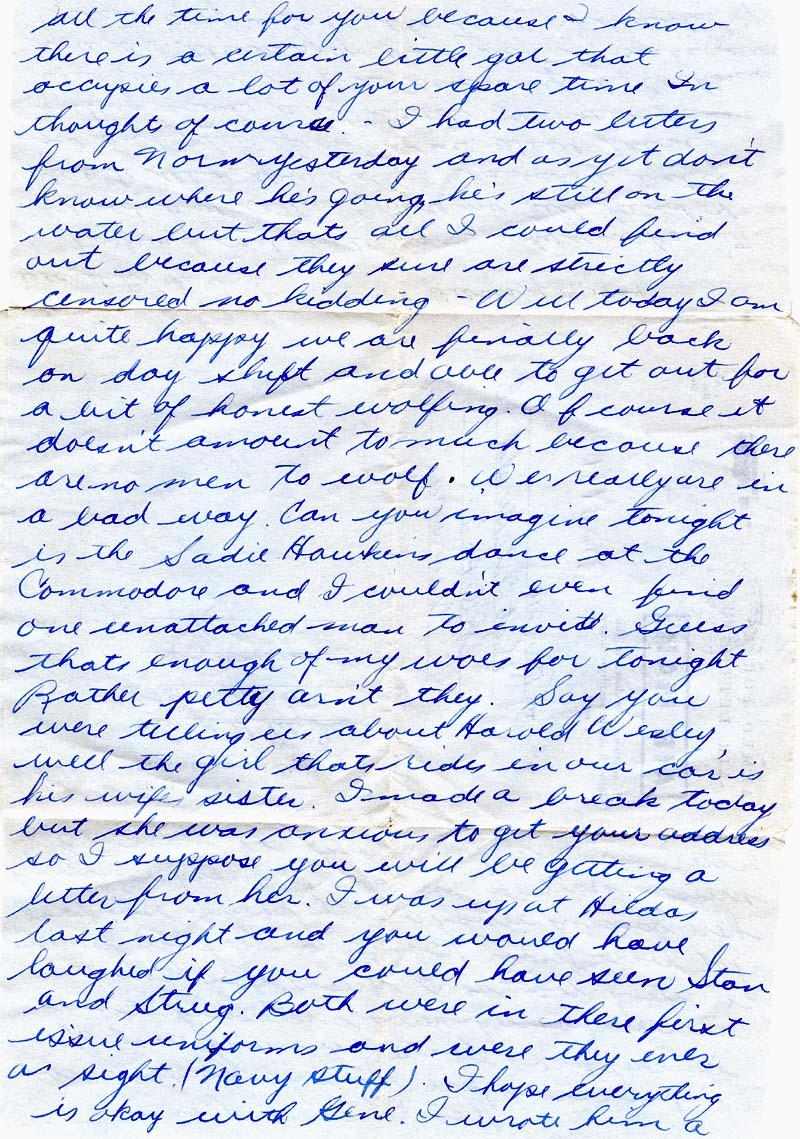 all the time for you because I know
there is a certain little gal that
occupies a lot of your spare time In
thought of course. - I had two letters
from Norm yesterday and as yet don't
know where he's going, he's still on the
water but thats all I could find
out because they sure are strictly
censored no kidding - Well today I am
quite happy we are finally back
on day shift and able to get out for
a bit of honest wolfing. Of course it
doesn't amount to much because there
are no men to wolf. We really are in
a bad way. Can you imagine tonight
is the Sadie Hawkins dance at the
Commodore and I couldn't even find
one unattached man to invite. Guess
thats enough of my woes for tonight
Rather petty arn't they. Say you
were telling us about Harold Wesley,
well the girl thats rides in our car is
his wifes sister. I made a break today
but she was anxious to get your address
so I suppose you will be getting a
letter from her. I was up at Hildas
last night and you would have
laughed if you could have seen Stan
and Strug. Both were in there first
issue uniforms and were they ever
a sight. (Navy stuff). I hope everything
is okay with Gene. I wrote him a